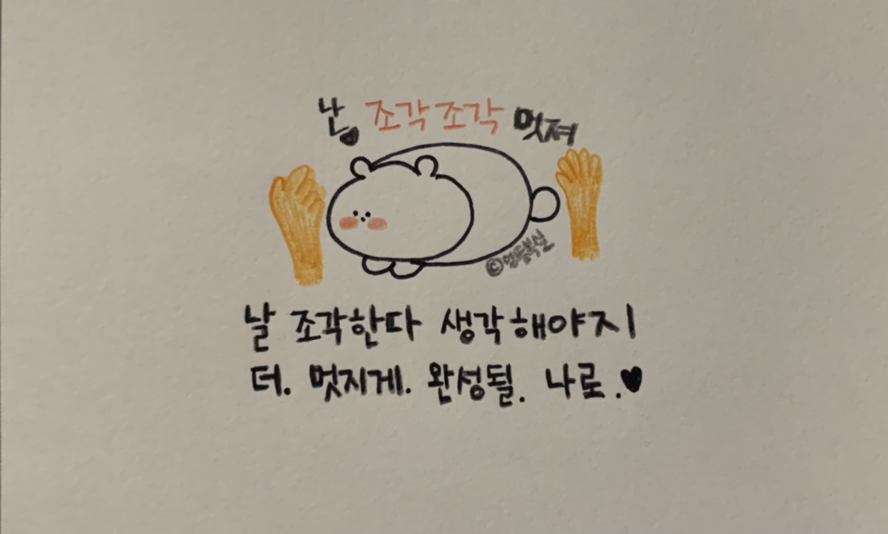 난, 조각조각 멋져
날 조각한다 생각해야지
더. 멋지게. 완성될. 나로.♥